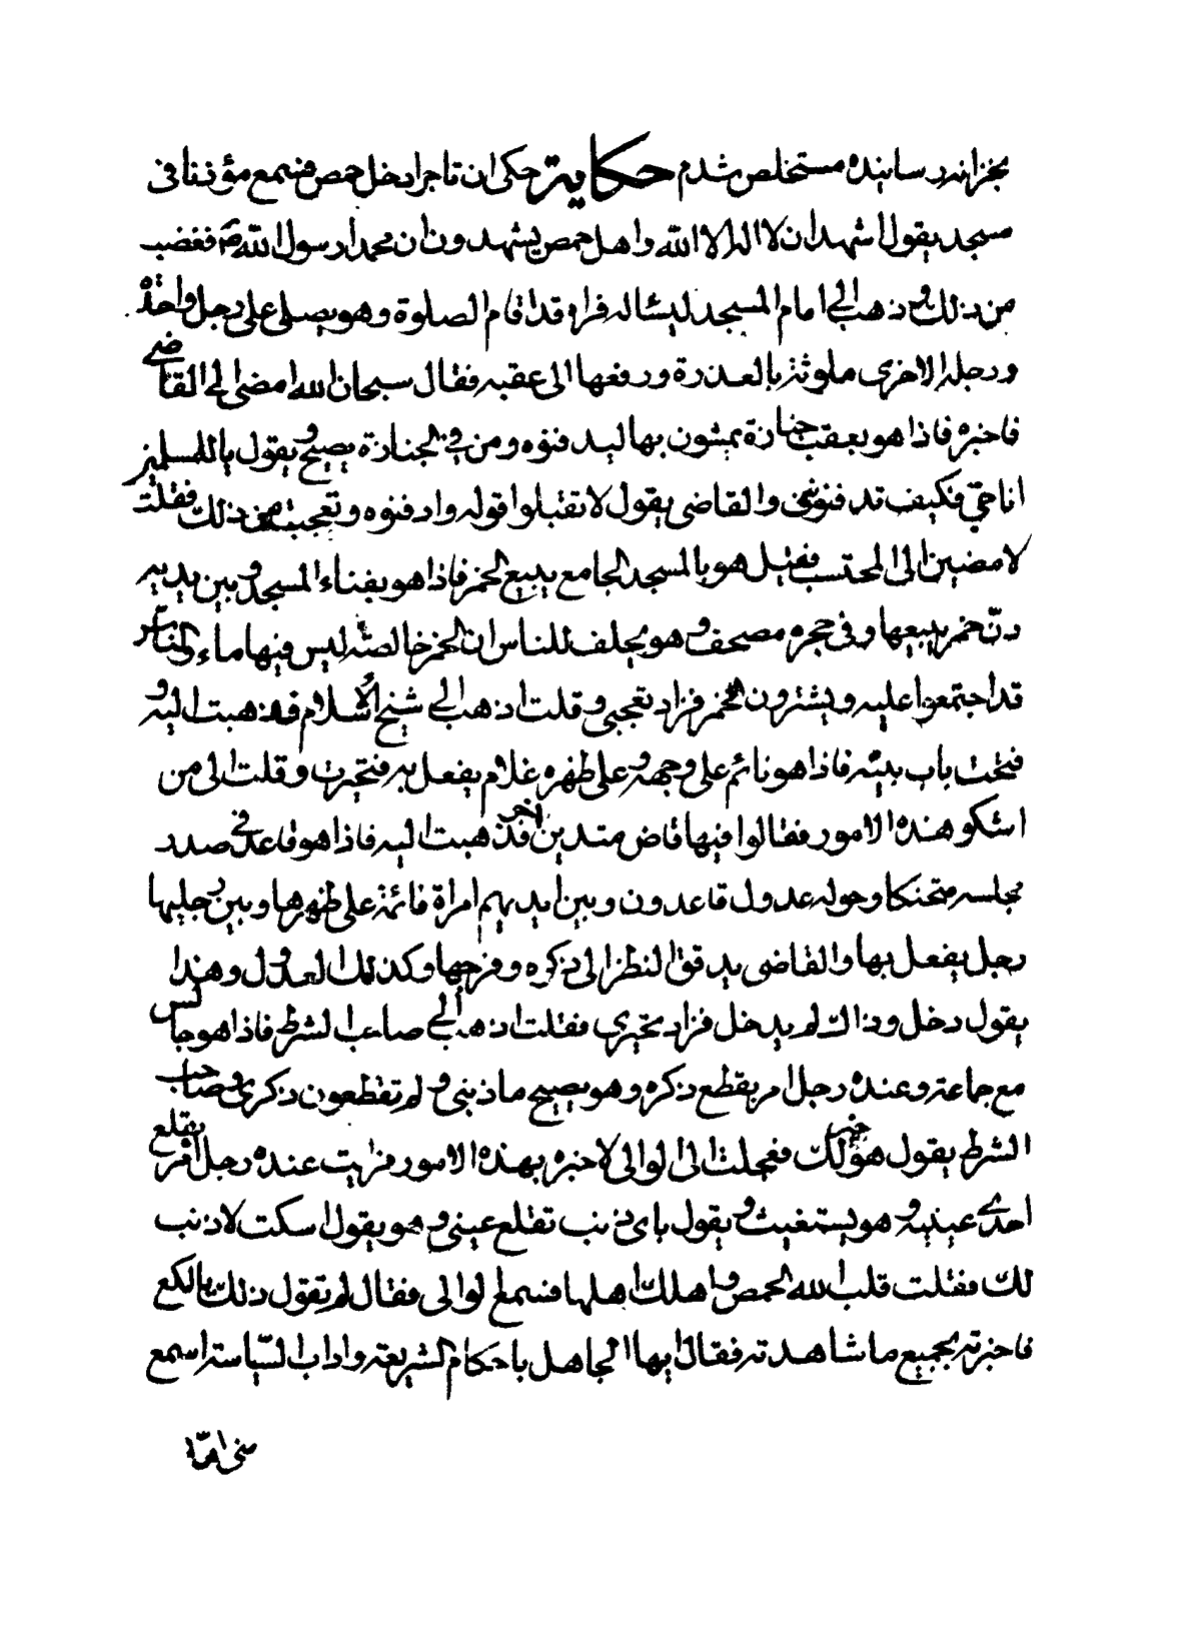 بخزانه رسانیده مستخلص شدم حكاية حكى ان تاجرا دخل حمص فسمع مؤذنا فى
مسجد يقول اشهد ان لا اله الا الله واهل حمص يشهدون ان محمدا رسول الله ص فغضب
من ذلك و ذهب الى امام المسجد ليسئاله فراه قد اقام الصلوة وهو يصلى على رجل واحدة
ورجله الاخرى ملوثة بالعذرة ورفعها الى عقبه فقال سبحان الله امضى الى القاضى
فاخبره فاذا هو بعقب جنازة يمشون بها ليدفنوه ومن فى الجنازة يصيح ويقول يا للمسلمين
انا حى فكيف تدفنونى والقاضى يقول لا تقبلوا قوله وادفنوه وتعجبت من ذلك فقلت
لامضين الى المحتسب فقيل هو بالمسجد الجامع يبيع الخمر فاذا هو بفناء المسجد وبين يديه
دنّ خمر يبيعها وفى حجره مصحف وهو يحلف للناس ان الخمر خالصة ليس فيها ماء والناس
قد اجتمعوا عليه ويشترون الخمر فزاد تعجبى وقلت اذهب الى شيخ الاسلام فذهبت اليه و
فتحت باب بيته فاذا هو نائم على وجهه وعلى ظهره غلام يفعل به فتحيرت وقلت الى من
اشكو هذه الامور فقالوا فيها قاض متدين اخر فذهبت اليه فاذا هو قاعد فى صدد
مجلسه متحنكا وحوله عدول قاعدون وبين ايديهم امراة نائمة على ظهرها وبين رجليها
رجل يفعل بها والقاضى يدقق النظر الى ذكره وفرجها وكذلك العدول وهذا
يقول دخل وذاك لم يدخل فزاد تحيرى فقلت اذهب الى صاحب الشرط فاذا هو جالس
مع جماعة وعنده رجل امر بقطع ذكره وهو يصيح ما ذنبى و لم تقطعون ذكرى وصاحب
الشرط يقول هو خير لك فعجلت الى الوالى لاخبره بهذه الامور فرايت عنده رجل امر بقلع
احدى عينيه و هو يستغيث ويقول باى ذنب تقلع عينى و هو يقول اسكت لا ذنب
لك فقلت قلب الله الحمص واهلك اهلها فسمع الوالى فقال لم تقول ذلك يا لكع
فاخبرته بجميع ما شاهدته فقال ايها الجاهل باحكام الشريعة واداب السّياسة اسمع
منى امّا